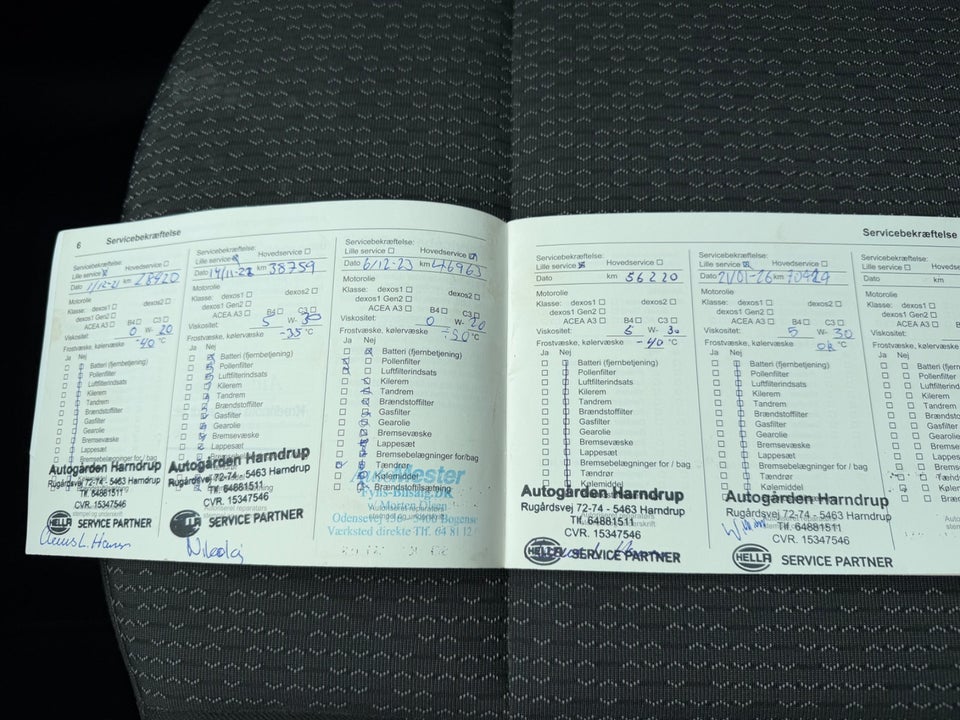 6 Servicebekræftelse
Servicebekræftelse:
Lille service Hovedservice
Dato 1/12-21 km 28920
Motorolie
Klasse: dexos1 dexos2
dexos1 Gen2
ACEA A3 B4 C3
Viskositet: 0 W- 20
Frostvæske, kølervæske -40 °C
Ja Nej
Batteri (fjernbetjening)
Pollenfilter
Luftfilterindsats
Kilerem
Tandrem
Brændstoffilter
Gasfilter
Gearolie
Bremsevæske
Lappesæt
Autogården Harndrup
Rugårdsvej 72-74 - 5463 Harndrup
Tlf. 64881511
CVR. 15347546
HELLA SERVICE PARTNER
Servicebekræftelse:
Lille service Hovedservice
Dato 14/11-22 km 38759
Motorolie
Klasse: dexos1 dexos2
dexos1 Gen2
ACEA A3 B4 C3
Viskositet: 5 W- 30
Frostvæske, kølervæske -35 °C
Ja Nej
Batteri (fjernbetjening)
Pollenfilter
Luftfilterindsats
Kilerem
Tandrem
Brændstoffilter
Gasfilter
Gearolie
Bremsevæske
Lappesæt
Autogården Harndrup
Rugårdsvej 72-74 - 5463 Harndrup
Tlf. 64881511
CVR. 15347546
SERVICE PARTNER
Nikolaj
Servicebekræftelse:
Lille service Hovedservice
Dato 6/12-23 km 46963
Motorolie
Klasse: dexos1 dexos2
dexos1 Gen2
ACEA A3 B4 C3
Viskositet: 0 W- 20
Frostvæske, kølervæske °C
Ja Nej
Batteri (fjernbetjening)
Pollenfilter
Luftfilterindsats
Kilerem
Tandrem
Brændstoffilter
Gasfilter
Gearolie
Bremsevæske
Lappesæt
Bremsebelægninger for / bag
Tændrør
Kølemiddel
Brændstoftilsætning
Fyns-Bilsalg.DK
Morten
5400 Bogense
Værksted direkte Tlf. 64 81 12
Servicebekræftelse
Servicebekræftelse:
Lille service Hovedservice
km 56220
Motorolie
Klasse: dexos1 dexos2
dexos1 Gen2
ACEA A3 B4 C3
Viskositet: 5 W- 30
Frostvæske, kølervæske -40 °C
Ja Nej
Batteri (fjernbetjening)
Pollenfilter
Luftfilterindsats
Kilerem
Tandrem
Brændstoffilter
Gasfilter
Gearolie
Bremsevæske
Lappesæt
Bremsebelægninger for / bag
Tændrør
Kølemiddel
Autogården Harndrup
Rugårdsvej 72-74 - 5463 Harndrup
Tlf. 64881511
CVR. 15347546
HELLA SERVICE PARTNER
Servicebekræftelse:
Lille service Hovedservice
Dato 21/01-26 km 70929
Motorolie
Klasse: dexos1 dexos2
dexos1 Gen2
ACEA A3 B4 C3
Viskositet: 5 W- 30
Frostvæske, kølervæske OK °C
Ja Nej
Batteri (fjernbetjening)
Pollenfilter
Luftfilterindsats
Kilerem
Tandrem
Brændstoffilter
Gasfilter
Gearolie
Bremsevæske
Lappesæt
Bremsebelægninger for / bag
Tændrør
Kølemiddel
Autogården Harndrup
Rugårdsvej 72-74 - 5463 Harndrup
Tlf. 64881511
CVR. 15347546
HELLA SERVICE PARTNER
Servicebekræftelse:
Lille service
Dato km
Motorolie
Klasse: dexos1
dexos1 Gen2
ACEA A3
Viskositet:
Frostvæske, kølervæske
Ja Nej